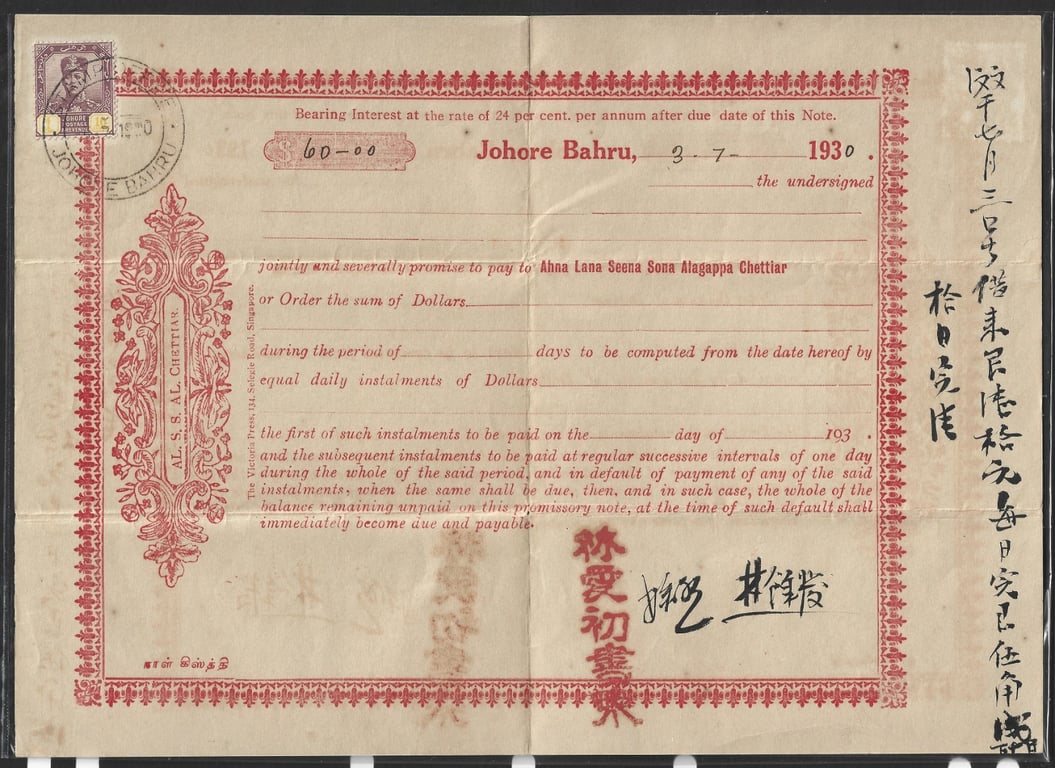 JOHORE
POSTAGE
REVENUE
JOHORE BAHRU
Bearing Interest at the rate of 24 per cent. per annum after due date of this Note.
$ 60-00
Johore Bahru, 3-7- 1930.
the undersigned
jointly and severally promise to pay to Ahna Lana Seena Sona Alagappa Chettiar
or Order the sum of Dollars
during the period of days to be computed from the date hereof by
equal daily instalments of Dollars
the first of such instalments to be paid on the day of 193 .
and the subsequent instalments to be paid at regular successive intervals of one day
during the whole of the said period, and in default of payment of any of the said
instalments, when the same shall be due, then, and in such case, the whole of the
balance remaining unpaid on this promissory note, at the time of such default shall
immediately become due and payable.
AL. S. S. AL. CHETTIAR.
The Victoria Press, 134, Selegie Road, Singapore.
நாள் கிஸ்த்தி
初
七月三
借來艮 拾元每日完艮伍角
拾日完